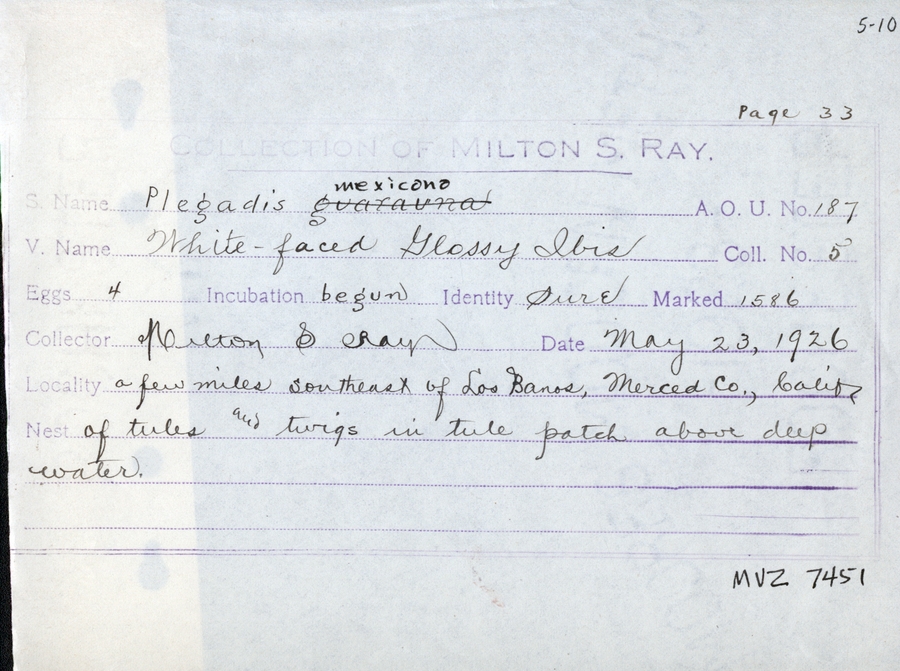 5-10
Page 33
COLLECTION OF MILTON S. RAY.
mexicano
S. Name Plegadis guarauna A. O. U. No. 187
V. Name White-faced Glossy Ibis Coll. No. 5
Eggs 4 Incubation begun Identity Sure Marked 1586
Collector Milton S Ray Date May 23, 1926
Locality a few miles southeast of Los Banos, Merced Co., Calif,
Nest of tules and twigs in tule patch above deep
water.
MVZ 7451